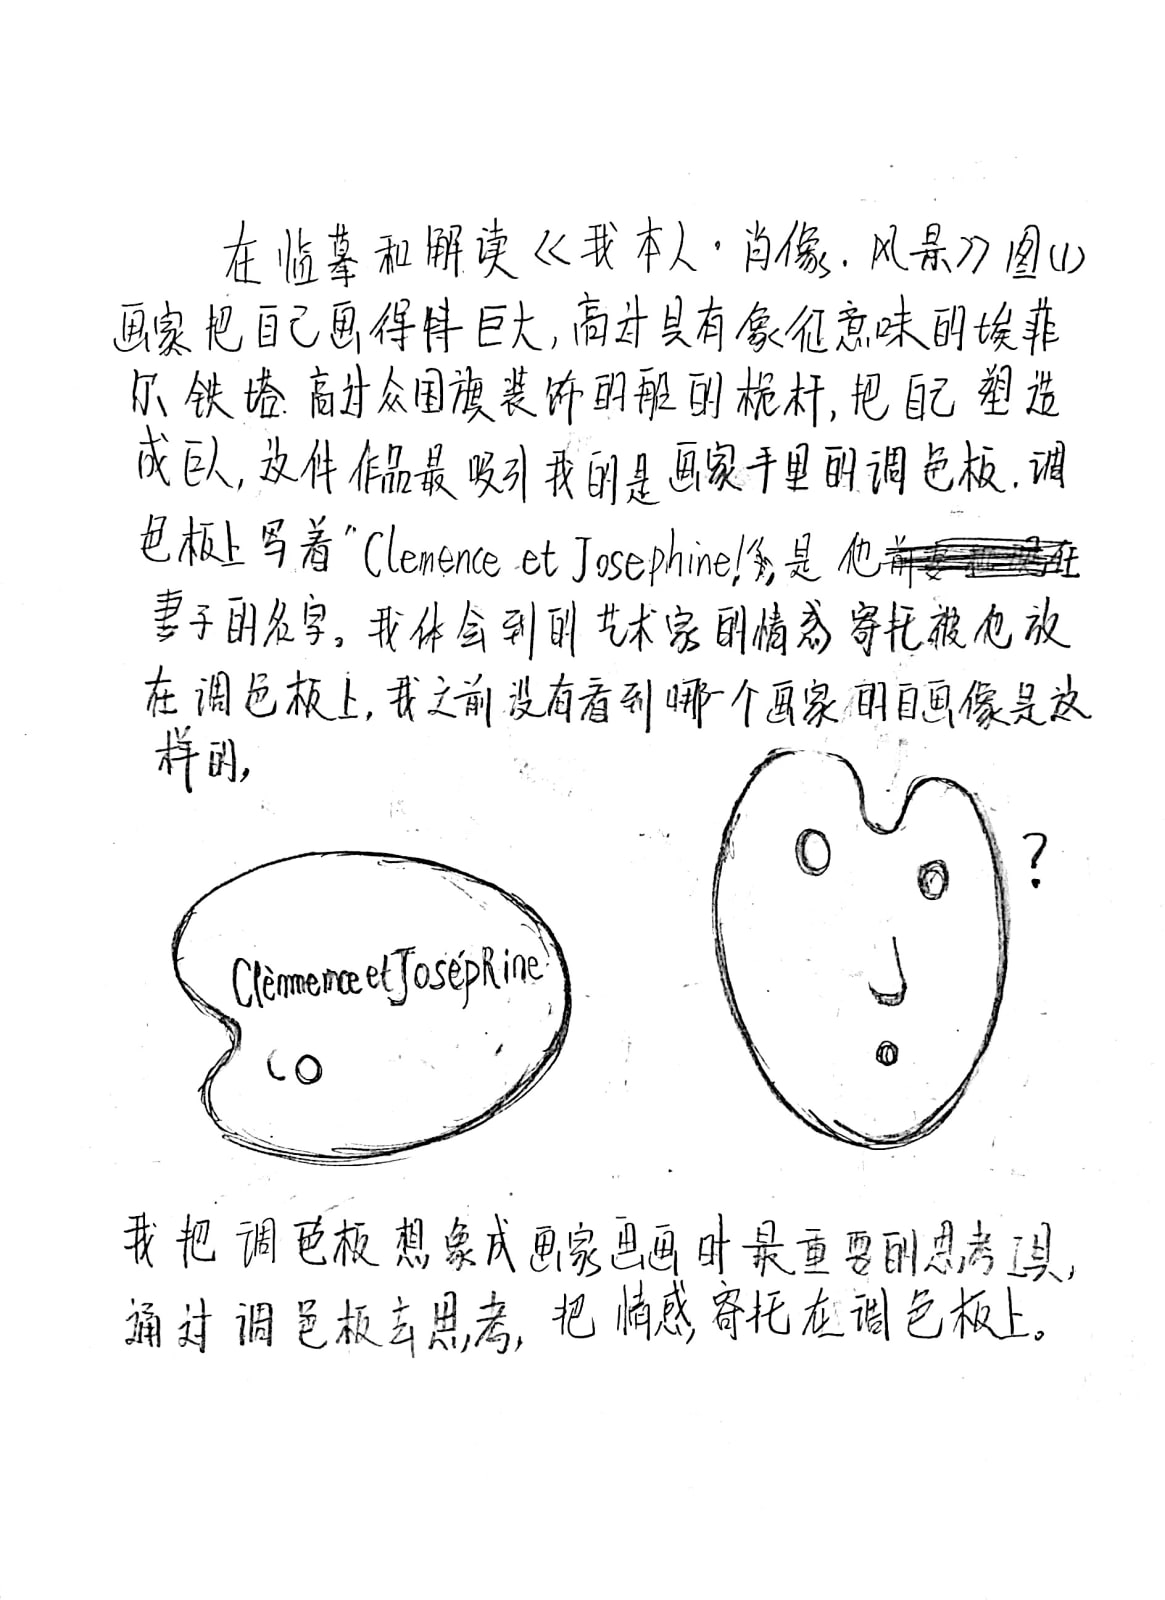 在临摹和解读《我本人·肖像.风景》图(1)
画家把自己画得特巨大,高过具有象征意味的埃菲
尔铁塔.高过众国旗装饰的船的桅杆,把自己塑造
成巨人,这件作品最吸引我的是画家手里的调色板.调
色板上写着"Clemence et Josephine!是他
妻子的名字。我体会到的艺术家的情感寄托被他放
在调色板上,我之前没有看到哪个画家的自画像是这
样的,
?
Clèmmemce et JoséphRine
我把调色板想象成画家画画时最重要的思考工具,
通过调色板去思考,把情感,寄托在调色板上。